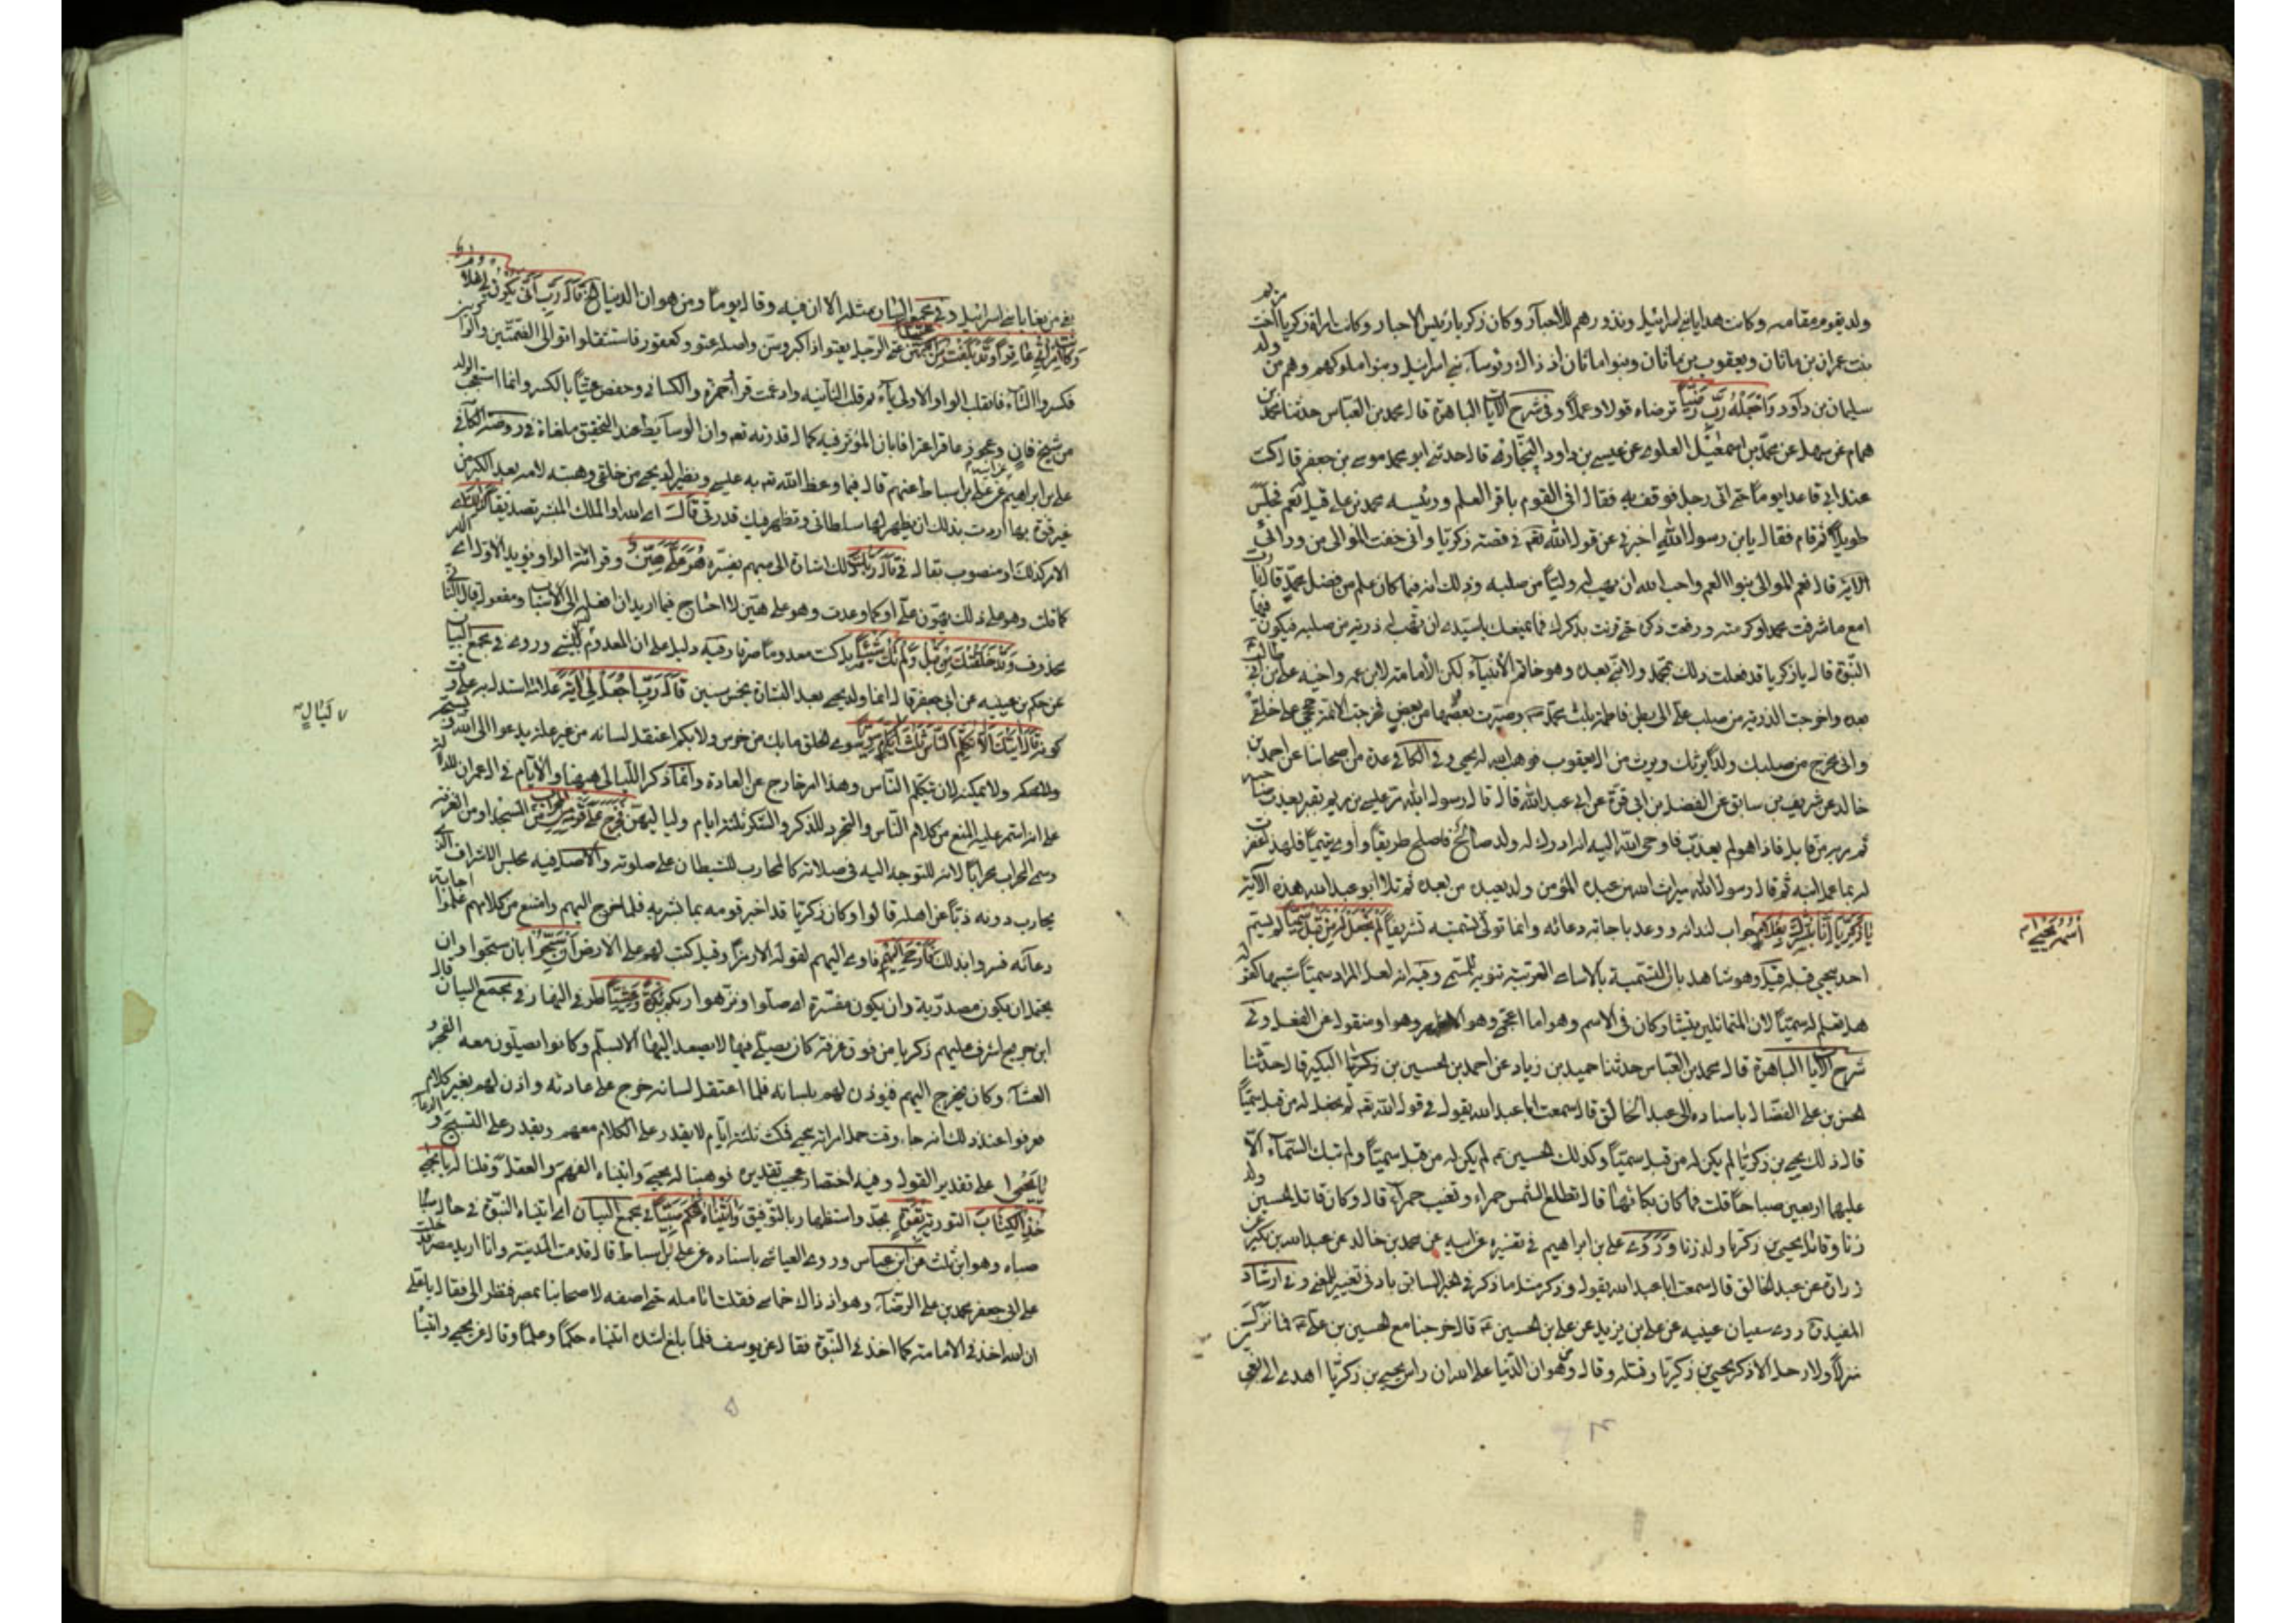 ولد يقوم مقامه وكانت هدايا بني اسرائيل ونذورهم للأحبار وكان زكريا رئيس الاحبار وكانت امراة زكريا اخت مريم
بنت عمران بن ماثان ويعقوب بن ماثان وبنوا ماثان اذ ذاك رؤساء بني اسرائيل وبنوا ملوكهم وهم من ولد
سليمان بن داود وَاجْعَلْهُ رَبِّ رَضِيّاً ترضاه قولا وعملاً وفي شرح الآيات الباهرة قال محمد بن العباس حدثنا محمد بن
همام عن سهل عن محمد بن اسمعيل العلوي عن عيسى بن داود النجار قال حدثني ابو محمد موسى بن جعفر قال كنت
عند ابي قاعدا يوماً حتى اتى رجل فوقف به فقال افي القوم باقر العلم ورئيسه محمد بن علي قيل له نعم فجلس
طويلاً ثم قام فقال يابن رسول الله اخبرني عن قول الله تعم في قصة زكريا واني خفت الموالي من ورائي
الآية قال نعم الموالي بنوا العم واحب الله ان يهب له وليّاً من صلبه وذلك انه فيما كان علم من فضل محمد قال يا رب
امع ما شرفت محمدا وكرمته ورفعت ذكره حتى قرنت بذكرك فما يمنعك يا سيدي ان تهب لي ذرية من صلبه فيكون فيها
النبوة قال يا زكريا قد فعلت ذلك بمحمد ولا نبي بعده وهو خاتم الأنبياء لكن الأمامة لابن عمه واخيه علي بن ابي طالب
بعده واخرجت الذرية من صلب علي الى بطن فاطمة بنت محمد وصيرت بعضها من بعض فخرجت الائمة حججي على خلقي
واني مخرج من صلبك ولداً يرثك ويرث من ال يعقوب فوهب الله له يحيى وفي الكافي عدة من اصحابنا عن احمد بن
خالد عن شريف بن سابق عن الفضل بن ابي قرة عن ابي عبد الله قال قال رسول الله مر عيسى بن مريم بقبر يعذب صاحبه
ثم مر به من قابل فاذا هو لم يعذب فاوحى الله اليه انه ادرك له ولد صالح فاصلح طريقاً وآوى يتيماً فلهذا غفرت
له بما عمل ابنه ثم قال رسول الله ميراث الله من عبده المؤمن ولد يعبده من بعده ثم تلا ابو عبد الله هذه الآية
يَا زَكَرِيَّا إِنَّا نُبَشِّرُكَ بِغُلَامٍ جواب لندائه ووعد باجابة دعائه وانما تولى تسميته تشريفاً لَمْ نَجْعَل لَّهُ مِن قَبْلُ سَمِيّاً لم يتسم
اسْمُهُ يَحْيَى
احد بيحيى قبله قيل وهو شاهد بان التسمية بالاسامي الغريبة تنويه للمسمى وفيه انه لعل المراد سميّاً شبيها كقوله
هل تعلم له سميّاً لان المتماثلين يتشاركان في الاسم وهو اما اعجمي وهو الاظهر وهو او منقول عن الفعل وفي
شرح الآيات الباهرة قال محمد بن العباس حدثنا حميد بن زياد عن احمد بن الحسين بن زكريا البكير قال حدثنا
الحسن بن علي الفضال باسناده الى عبد الخالق قال سمعت ابا عبد الله يقول في قول الله تعم لم نجعل له من قبل سميّاً
قال ذلك يحيى بن زكريا لم يكن له من قبل سميّاً وكذلك الحسين لم يكن له من قبل سميّاً ولم تبك السمآء الّا
عليهما اربعين صباحاً قلت فما كان بكائهما قال تطلع الشمس حمراء وتغيب حمرآء قال وكان قاتل الحسين ولد
زنا وقاتل يحيى بن زكريا ولد زنا وَرَوَى علي بن ابراهيم في تفسيره عن ابيه عن محمد بن خالد عن عبد الله بن بكير عن
زرارة عن عبد الخالق قال سمعت ابا عبد الله يقول وذكر مثل ما ذكر في الخبر السابق بادنى تغيير وفي ارشاد
المفيد روى سفيان عيينه عن علي بن يزيد عن علي بن الحسين قال خرجنا مع الحسين بن علي فما نزل
منزلاً ولا رحل الا ذكر يحيى بن زكريا وقتله وقال من هوان الدنيا على الله ان راس يحيى بن زكريا اهدي الى بغي
بغي من بغايا بني اسرائيل وفي مجمع البيان مثله الا ان فيه وقال يوماً ومن هوان الدنيا الخ قَالَ رَبِّ أَنَّى يَكُونُ لِي غُلَامٌ
وَكَانَتِ امْرَأَتِي عَاقِراً وَقَدْ بَلَغْتُ مِنَ الْكِبَرِ عِتِيّاً من عتى الرجل يعتو اذا كبر وسن واصله عتو وكقعود فاستثقلوا توالي الضمتين والواوين
فكسروا التاء فانقلبت الواو الاولى ياء ثم قلبت الثانية وادغمت قرأ حمزة والكسائي وحفص عتيّاً بالكسر وانما استعجب الولد
من شيخ فان وعجوز عاقر اعترافا بان المؤثر فيه كمال قدرته تعم وان الوسايط عند التحقيق ملغاة في روضة الكافي
علي بن ابراهيم عن ابيه عن علي بن اسباط عنهم قال فيما وعظ الله تعم به عيسى ونظيرك يحيى من خلقي وهبته لامه بعد الكبر من
غير قوة بها اردت بذلك ان يظهر لها سلطاني وتظهر فيك قدرتي قَالَ اي الله او الملك المبشر تصديقا له كَذَلِكَ
الامر كذلك او منصوب بقال في قَالَ رَبُّكَ وذلك اشارة الى مبهم يفسره هُوَ عَلَيَّ هَيِّنٌ وقرائة الواو يؤيد الأول اي الامر
كما قلت وهو على ذلك يهون علي او كما وعدت وهو علي هين لا احتاج فيما اريد ان افعله الى الأسباب ومفعول قال الثاني
محذوف وَقَدْ خَلَقْتُكَ مِن قَبْلُ وَلَمْ تَكُ شَيْئاً بل كنت معدوماً صرفا وفيه دليل على ان المعدوم ليس بشيء وروى في مجمع البيان
عن حكم بن عيينه عن ابي جعفر قال انما ولد يحيى بعد البشارة بخمس سنين قَالَ رَبِّ اجْعَل لِّي آيَةً علامة استدل بها على وقت
كونه قَالَ آيَتُكَ أَلَّا تُكَلِّمَ النَّاسَ ثَلَاثَ لَيَالٍ سَوِيّاً سوي الخلق ما بك من خرس ولا بكم اعتقل لسانه من غير علة يدعوا الى الله ويسبحه
ليال
ويشكره ولا يمكنه ان يتكلم الناس وهذا امر خارج عن العادة وانما ذكر الليالي ههنا والأيام في ال عمران للدلالة
على انه استمر عليه المنع من كلام الناس والتجرد للذكر والشكر ثلثة ايام ولياليهن فَخَرَجَ عَلَى قَوْمِهِ مِنَ الْمِحْرَابِ من المسجد او من الغرفة
وسمي المحراب محراباً لانه للتوجه اليه في صلاته كالمحارب للشيطان على صلوته والاصل فيه مجلس الاشراف الذي
يحارب دونه ذبّاً عن اهله قالوا وكان زكريا قد اخبر قومه بما بشر به فلما خرج اليهم وامتنع من كلامهم علموا اجابة
دعائه فسروا بذلك فَأَوْحَى إِلَيْهِمْ فاومى اليهم لقوله الا رمزاً وقيل كتب لهم على الارض أَن سَبِّحُوا بان سبحوا وان
يحتمل ان يكون مصدرية وان يكون مفسرة اي صلوا ونزهوا ربكم بُكْرَةً وَعَشِيّاً طرفي النهار في مجمع البيان قال
ابن جريج اشرف عليهم زكريا من فوق غرفة كان يصلي فيها لا يصعد اليها الا بسلم وكانوا يصلون معه الفجر و
العشاء وكان يخرج اليهم فيؤذن لهم بلسانه فلما اعتقل لسانه خرج على عادته واذن لهم بغير كلام
فعرفوا عند ذلك انه جاء وقت حمل امراته بيحيى فمكث ثلثة ايام لا يقدر على الكلام معهم ويقدر على التسبيح والدعاء
يَا يَحْيَى على تقدير القول وفيه اختصار عجيب تقديره فوهبنا له يحيى واتيناه الفهم والعقل وقلنا له يا يحيى
خُذِ الْكِتَابَ التورية بِقُوَّةٍ بجد واستظهار بالتوفيق وَآتَيْنَاهُ الْحُكْمَ صَبِيّاً في مجمع البيان اي اتيناه النبوة في حال صباه
صباه وهو ابن ثلث عن ابن عباس وروى العياشي باسناده عن علي بن اسباط قال قدمت المدينة وانا اريد مصر فدخلت
على ابي جعفر محمد بن علي الرضا وهو اذ ذاك خماسي فقلت اتامله حتى اصفه لاصحابنا بمصر فنظر الي فقال يا علي
ان الله اخذ في الامامة كما اخذ في النبوة فقال عن يوسف فلما بلغ اشده اتيناه حكماً وعلماً وقال عن يحيى واتيناه